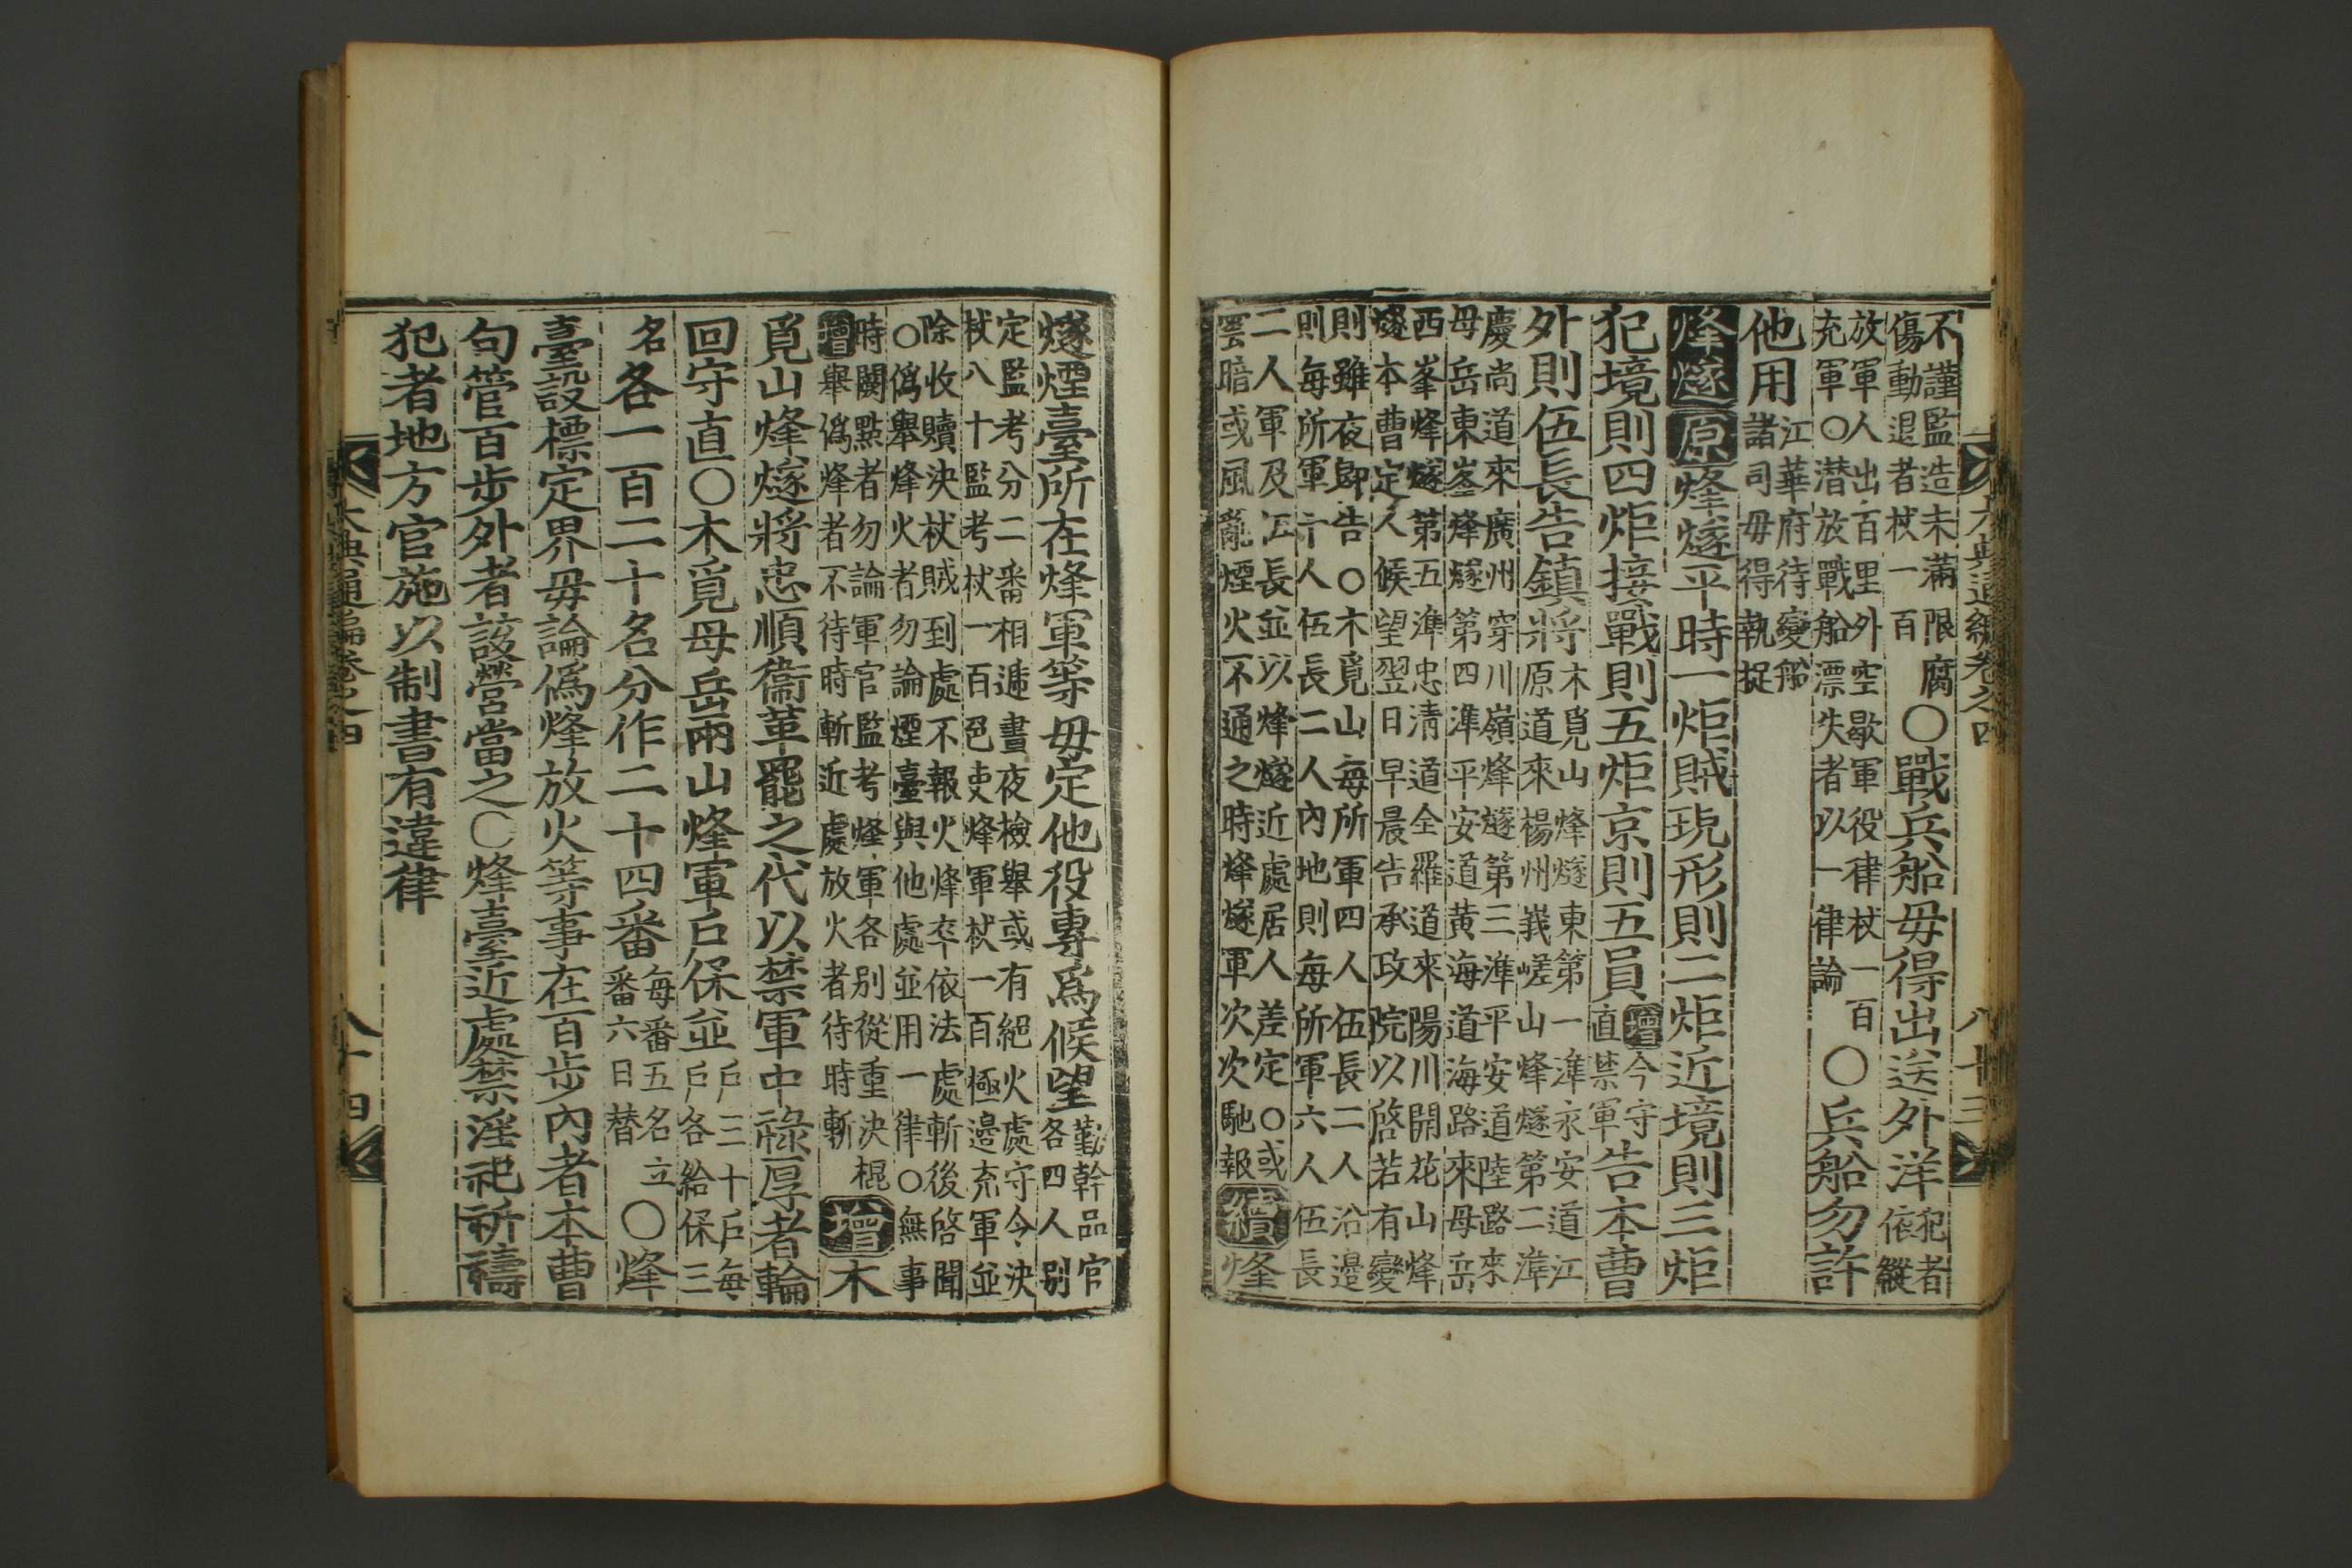 不謹監造未滿限腐
傷動退者杖一百
○戰兵船毋得出送外洋
犯者
依縱
放軍人出百里外空歇軍役律杖一百
充軍○潜放戰船漂失者以一律論
○兵船勿許
他用
江華府待變船
諸司毋得執捉
烽燧原烽燧平時一炬賊現形則二炬近境則三炬
犯境則四炬接戰則五炬京則五員
增今守
直禁軍
告本曹
外則伍長告鎮將
木覓山烽燧東第一準永安道江
原道來楊州峩嵯山烽燧第二準
慶尚道來廣州穿川嶺烽燧第三準平安道陸路來
母岳東峯烽燧第四準平安道黄海道海路來母岳
西峯烽燧第五準忠清道全羅道來陽川開花山烽
燧本曹定人候望翌日早晨告承政院以啓若有變
則雖夜卽告○木覓山每所軍四人伍長二人沿邊
則每所軍十人伍長二人內地則每所軍六人伍長
二人軍及伍長並以烽燧近處居人差定○或
雲暗或風亂煙火不通之時烽燧軍次次馳報
續烽
大典通編卷之四
八十三
燧煙臺所在烽軍等毋定他役專爲候望
勤幹品官
各四人别
定監考分二番相遞晝夜檢舉或有絕火處守令決
杖八十監考杖一百色吏烽軍杖一百極邊充軍並
除收贖決杖賊到處不報火烽卒依法處斬後啓聞
○僞舉烽火者勿論煙臺與他處並用一律○無事
時闕點者勿論軍官監考烽軍各别從重決棍
增舉僞烽者不待時斬近處放火者待時斬
增木
覓山烽燧將忠順衞革罷之代以禁軍中祿厚者輪
回守直○木覓母岳兩山烽軍戶保並
戶三十戶每
戶各給保三
名
各一百二十名分作二十四番
每番五名立
番六日替
○烽
臺設標定界毋論僞烽放火等事在百步內者本曹
句管百步外者該營當之○烽臺近處禁淫祀祈禱
犯者地方官施以制書有違律
大典通編卷之四
八十四